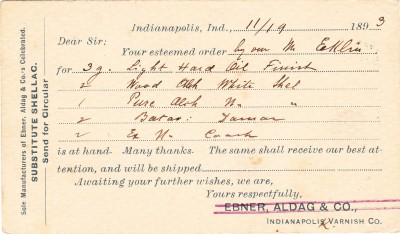 Indianapolis, Ind., 11/19 1893
Dear Sir:
Your esteemed order by our Mr
for 3 g. Light Hard Oil Finish
2 Wood Alch White Shel
1 Pure Alch " "
2 Damar
2 Ex Coach
is at hand. Many thanks. The same shall receive our best at-
tention, and will be shipped
Awaiting your further wishes, we are,
Yours respectfully,
EBNER, ALDAG & CO.,
INDIANAPOLIS VARNISH CO.
Sole Manufacturers of Ebner, Aldag & Co.'s Celebrated
SUBSTITUTE SHELLAC.
Send for Circular